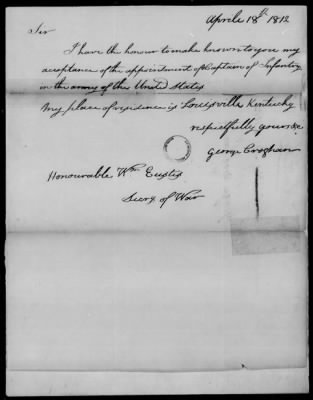 Aprile 18th 1812
Sir
I have the honour to make known to you my
acceptance of the appointment of Captain of Infantry
in the army of the United States
My place of residence is Louisville Kentucky
respectfully yours &c
George Croghan
Honourable Wm Eustis
Secry of War